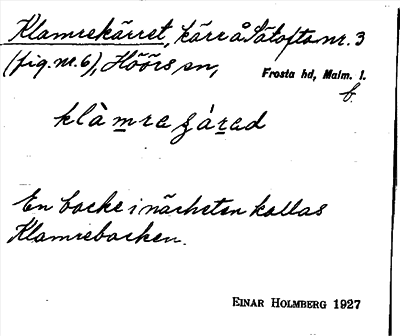 Klamrekärret, kärr å Sätofta nr. 3
(fig. nr. 6), Höörs sn,
Frosta hd, Malm. l.
b.
En backe i närheten kallas
Klamrebacken.
EINAR HOLMBERG 1927